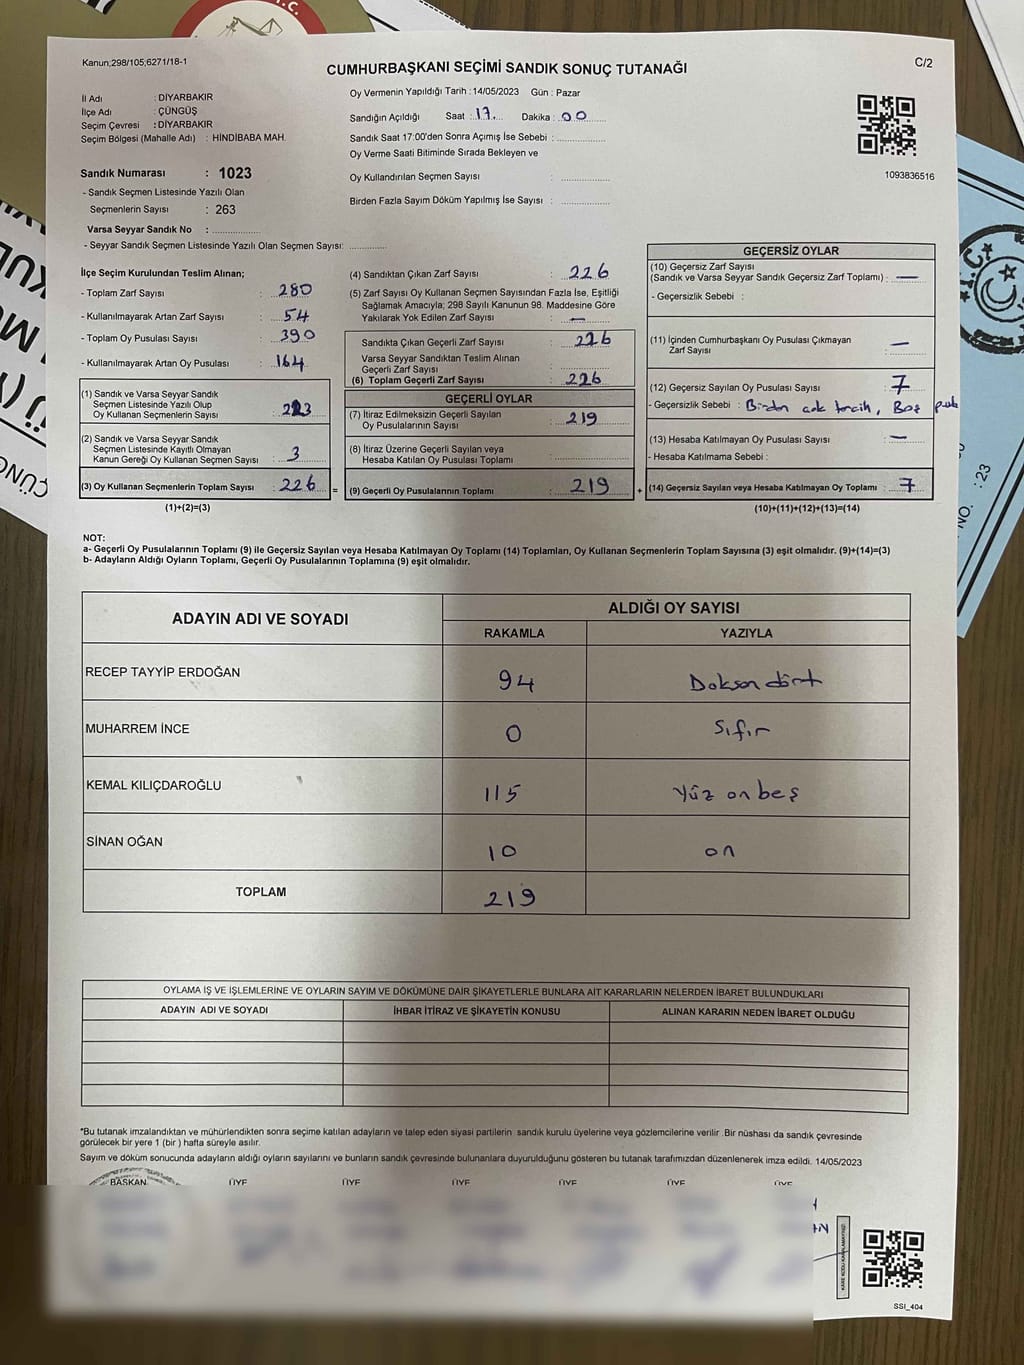 Kanun;298/105;6271/18-1
CUMHURBAŞKANI SEÇİMİ SANDIK SONUÇ TUTANAĞI
C/2
İl Adı : DİYARBAKIR
İlçe Adı : ÇÜNGÜŞ
Seçim Çevresi : DİYARBAKIR
Seçim Bölgesi (Mahalle Adı) : HİNDİBABA MAH.
Sandık Numarası : 1023
- Sandık Seçmen Listesinde Yazılı Olan
Seçmenlerin Sayısı : 263
Varsa Seyyar Sandık No : ..............
- Seyyar Sandık Seçmen Listesinde Yazılı Olan Seçmen Sayısı: ..............
Oy Vermenin Yapıldığı Tarih : 14/05/2023 Gün : Pazar
Sandığın Açıldığı Saat : 17 Dakika : 00
Sandık Saat 17:00'den Sonra Açımış İse Sebebi : ..............
Oy Verme Saati Bitiminde Sırada Bekleyen ve
Oy Kullandırılan Seçmen Sayısı : ..............
Birden Fazla Sayım Döküm Yapılmış İse Sayısı : ..............
1093836516
İlçe Seçim Kurulundan Teslim Alınan;
- Toplam Zarf Sayısı : 280
- Kullanılmayarak Artan Zarf Sayısı : 54
- Toplam Oy Pusulası Sayısı : 390
- Kullanılmayarak Artan Oy Pusulası : 164
(1) Sandık ve Varsa Seyyar Sandık
Seçmen Listesinde Yazılı Olup
Oy Kullanan Seçmenlerin Sayısı : 223
(2) Sandık ve Varsa Seyyar Sandık
Seçmen Listesinde Kayıtlı Olmayan
Kanun Gereği Oy Kullanan Seçmen Sayısı : 3
(3) Oy Kullanan Seçmenlerin Toplam Sayısı : 226 =
(1)+(2)=(3)
(4) Sandıktan Çıkan Zarf Sayısı : 226
(5) Zarf Sayısı Oy Kullanan Seçmen Sayısından Fazla İse, Eşitliği
Sağlamak Amacıyla; 298 Sayılı Kanunun 98. Maddesine Göre
Yakılarak Yok Edilen Zarf Sayısı : —
Sandıkta Çıkan Geçerli Zarf Sayısı : 226
Varsa Seyyar Sandıktan Teslim Alınan
Geçerli Zarf Sayısı
(6) Toplam Geçerli Zarf Sayısı : 226
GEÇERLİ OYLAR
(7) İtiraz Edilmeksizin Geçerli Sayılan
Oy Pusulalarının Sayısı : 219
(8) İtiraz Üzerine Geçerli Sayılan veya
Hesaba Katılan Oy Pusulası Toplamı : ..............
(9) Geçerli Oy Pusulalarının Toplamı : 219 +
GEÇERSİZ OYLAR
(10) Geçersiz Zarf Sayısı
(Sandık ve Varsa Seyyar Sandık Geçersiz Zarf Toplamı) : —
- Geçersizlik Sebebi :
(11) İçinden Cumhurbaşkanı Oy Pusulası Çıkmayan
Zarf Sayısı : —
(12) Geçersiz Sayılan Oy Pusulası Sayısı : 7
- Geçersizlik Sebebi : Birden çok tercih, Boş pusula
(13) Hesaba Katılmayan Oy Pusulası Sayısı : —
- Hesaba Katılmama Sebebi :
(14) Geçersiz Sayılan veya Hesaba Katılmayan Oy Toplamı : 7
(10)+(11)+(12)+(13)=(14)
NOT:
a- Geçerli Oy Pusulalarının Toplamı (9) ile Geçersiz Sayılan veya Hesaba Katılmayan Oy Toplamı (14) Toplamları, Oy Kullanan Seçmenlerin Toplam Sayısına (3) eşit olmalıdır. (9)+(14)=(3)
b- Adayların Aldığı Oyların Toplamı, Geçerli Oy Pusulalarının Toplamına (9) eşit olmalıdır.
ADAYIN ADI VE SOYADI
ALDIĞI OY SAYISI
RAKAMLA YAZIYLA
RECEP TAYYİP ERDOĞAN 94 Doksan dört
MUHARREM İNCE 0 Sıfır
KEMAL KILIÇDAROĞLU 115 Yüz on beş
SİNAN OĞAN 10 on
TOPLAM 219
OYLAMA İŞ VE İŞLEMLERİNE VE OYLARIN SAYIM VE DÖKÜMÜNE DAİR ŞİKAYETLERLE BUNLARA AİT KARARLARIN NELERDEN İBARET BULUNDUKLARI
ADAYIN ADI VE SOYADI İHBAR İTİRAZ VE ŞİKAYETİN KONUSU ALINAN KARARIN NEDEN İBARET OLDUĞU
*Bu tutanak imzalandıktan ve mühürlendikten sonra seçime katılan adayların ve talep eden siyasi partilerin sandık kurulu üyelerine veya gözlemcilerine verilir .Bir nüshası da sandık çevresinde
görülecek bir yere 1 (bir ) hafta süreyle asılır.
Sayım ve döküm sonucunda adayların aldığı oyların sayılarını ve bunların sandık çevresinde bulunanlara duyurulduğunu gösteren bu tutanak tarafımızdan düzenlenerek imza edildi. 14/05/2023
BAŞKAN ÜYE ÜYE ÜYE ÜYE ÜYE ÜYE
SSI_404